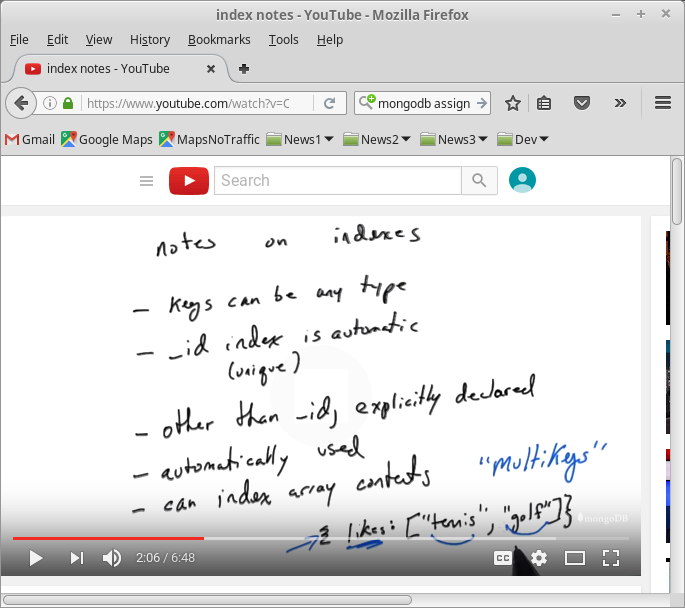 index notes - YouTube - Mozilla Firefox
File Edit View History Bookmarks Tools Help
index notes - YouTube
https://www.youtube.com/watch?v=C
mongodb assign
Gmail Google Maps MapsNoTraffic News1 News2 News3 Dev
Search
notes on indexes
- keys can be any type
- _id index is automatic
(unique)
- other than _id, explicitly declared
- automatically used
- can index array contents "multikeys"
{ likes: ["tennis", "golf"]}
mongoDB
2:06 / 6:48
CC